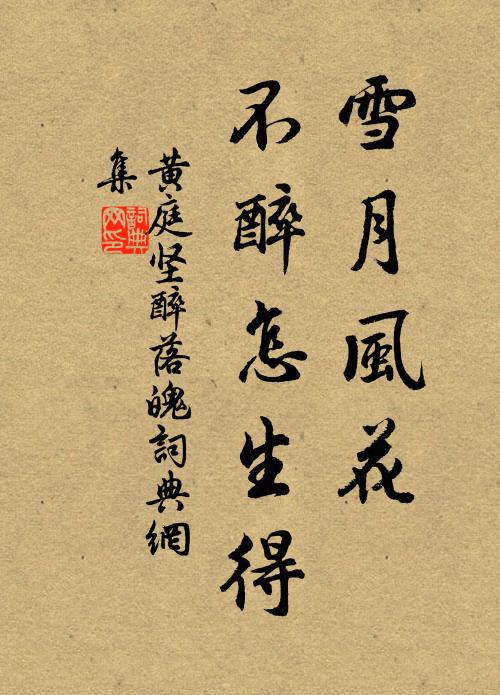 雪月風花
不醉怎生得
黄庭坚醉落魄詞典網
集
詞典网印